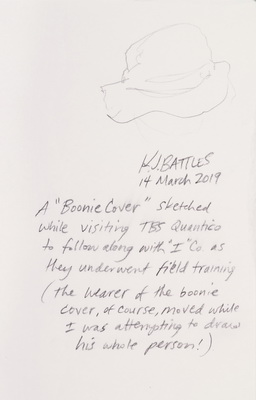 K.J. BATTLES
14 March 2019
A "Boonie Cover" sketched
while visiting TBS Quantico
to follow along with "I" Co. as
they underwent field training
(the wearer of the boonie
cover, of course, moved while
I was attempting to draw
his whole person!)